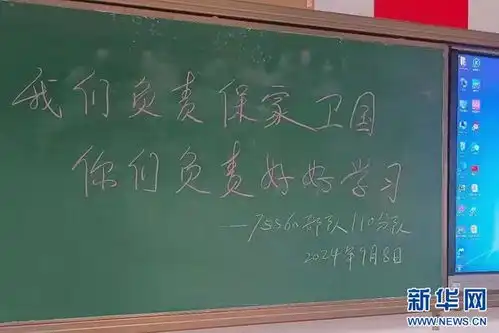 我们负责保家卫国
你们负责好好学习
——75560部队110分队
2024年9月8日
新华网
WWW.NEWS.CN